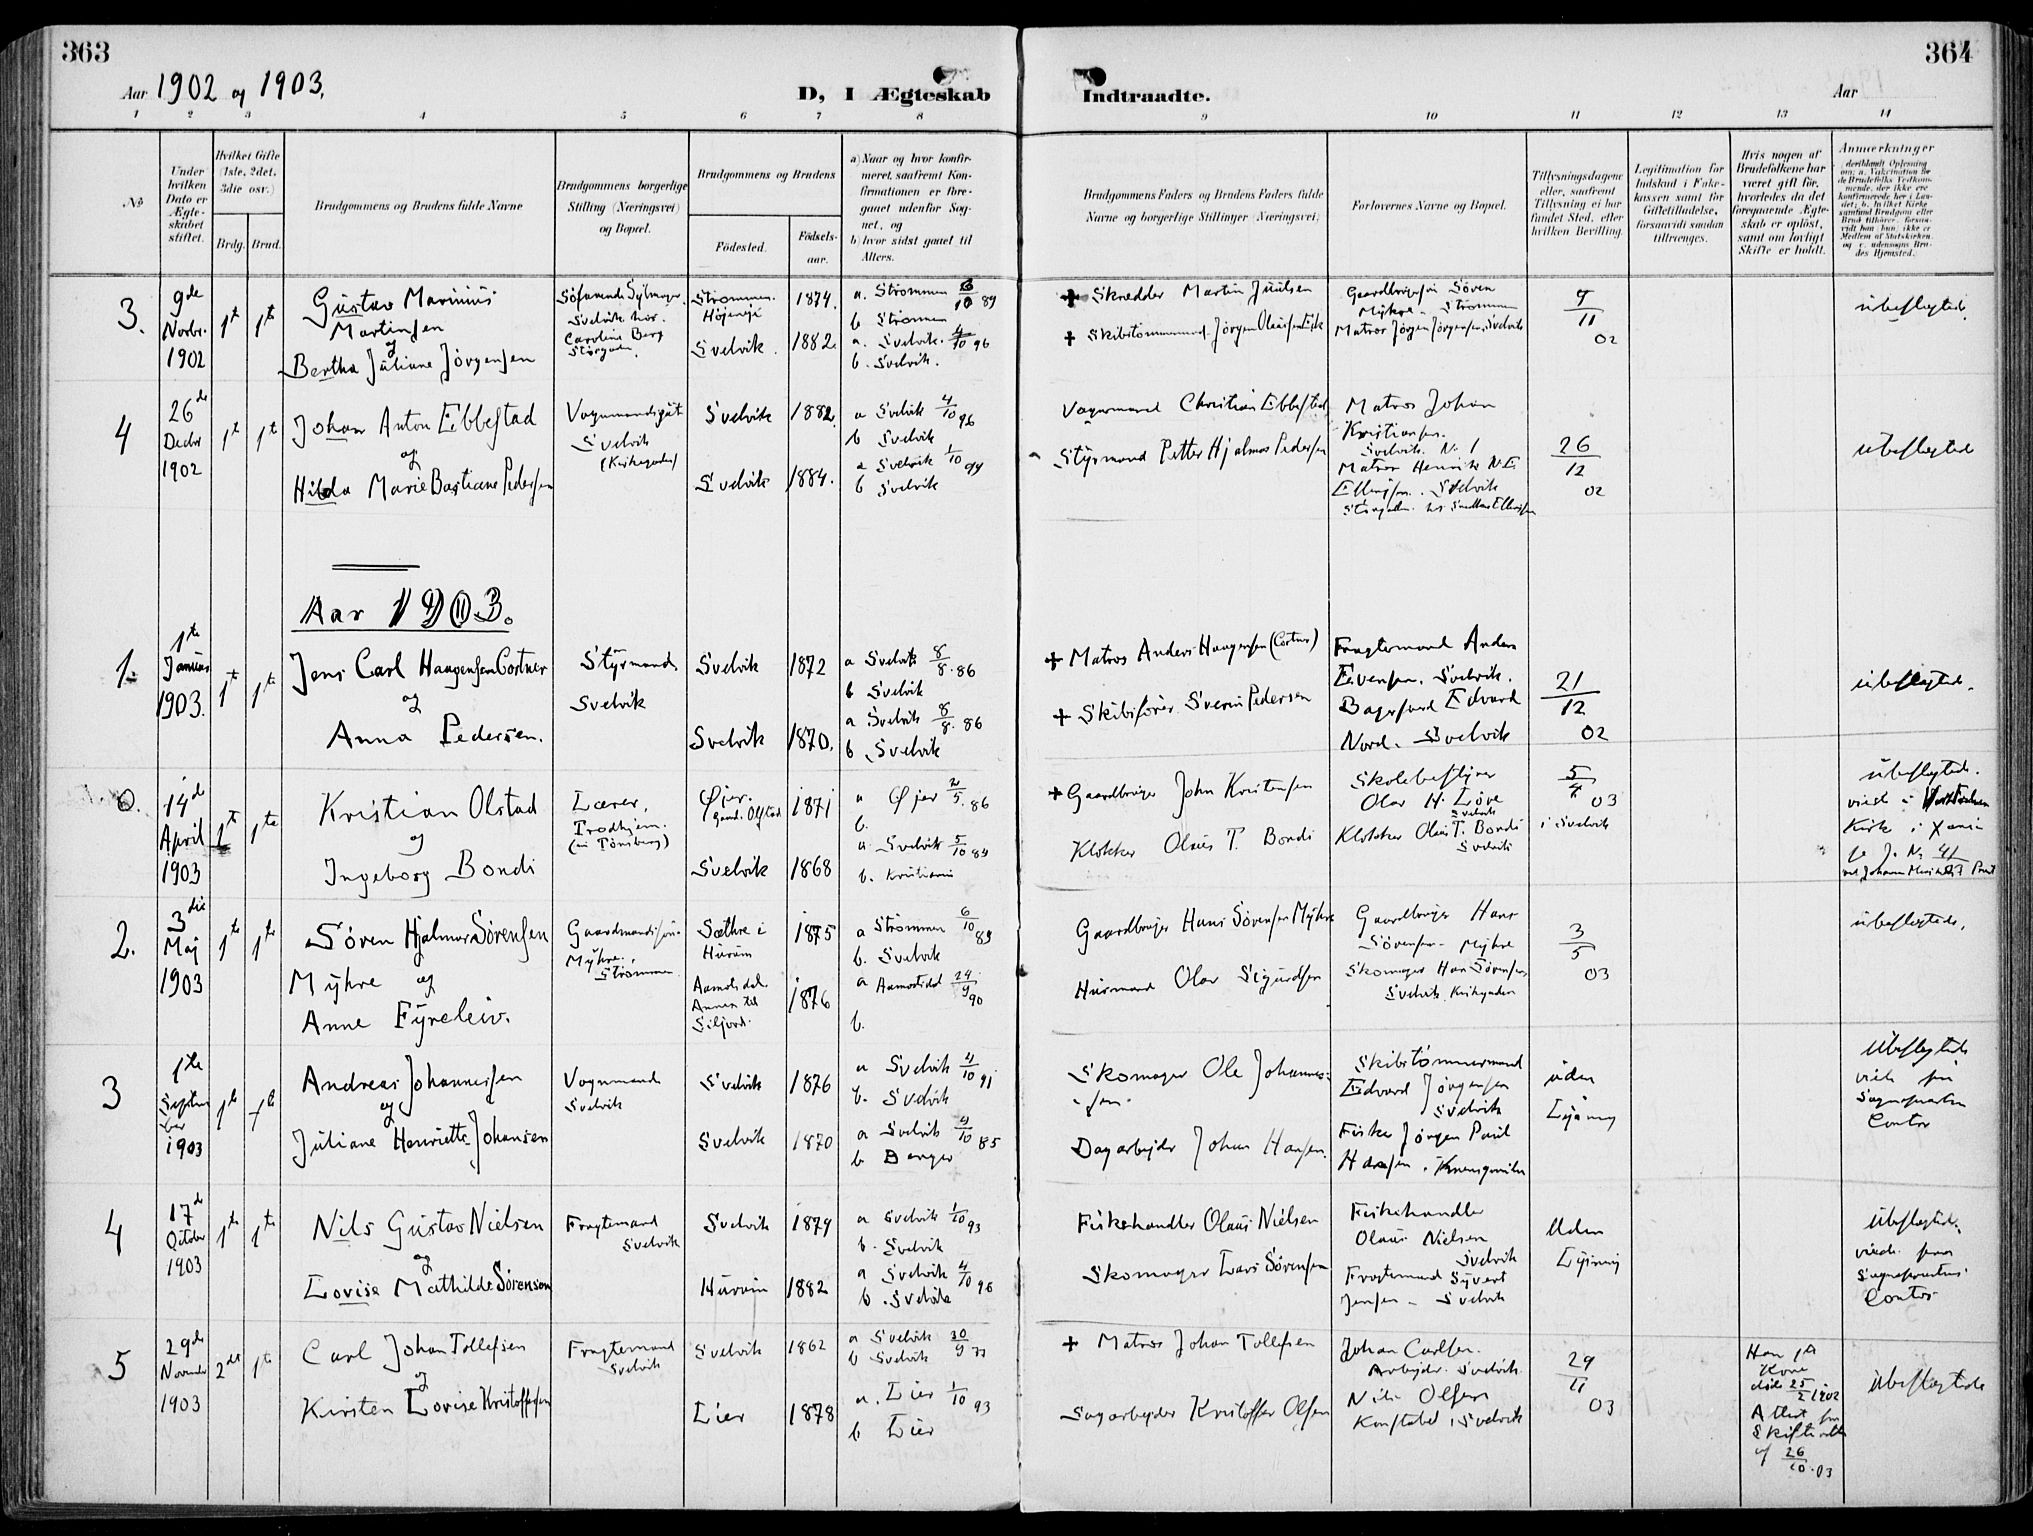 363
364
Aar 1902 og 1903.
D, I Ægteskab
Indtraadte.
Aar
1 2 3 4 5 6 7 8
9 10 11 12 13 14
No
Under hvilken Dato er Ægteskabet stiftet.
Hvilket Gifte (1ste, 2det, 3die osv.)
Brdg. Brud.
Brudgommens og Brudens fulde Navne
Brudgommens borgerlige Stilling (Næringsvei) og Bopæl.
Brudgommens og Brudens
Födested.
Födselsaar.
a) Naar og hvor konfirmeret, saafremt Konfirmationen er foregaaet udenfor Sognet, og
b) hvor sidst gaaet til Alters.
Brudgommens Faders og Brudens Faders fulde Navne og borgerlige Stillinger (Næringsvei)
Forlovernes Navne og Bopæl.
Tillysningsdagene eller, saafremt Tillysning ei har fundet Sted, efter hvilken Bevilling.
Legitimation for Indskud i Enkekassen samt for Giftetilladelse, forsaavidt saadan tiltrænges.
Hvis nogen af Brudefolkene har været gift før, hvorledes da det foregaaende Ægteskab er oplöst, samt om lovligt Skifte er holdt.
Anmerkninger
3.
9de
Novbr.
1902
1te 1te
Gustav Marinius
Martinsen
og
Bertha Juliane Jörgensen
Svelvik hos
Caroline Berg
Strømmen
1874.
Svelvik. 1882.
a. Strømmen 6/10 89
b Strømmen
a. Svelvik. 4/10 96
b. Svelvik.
+ Skredder Martin Juulsen
Søren
Mÿhre - Strømmen
Matros Jörgen Jörgensen, Svelvik
9/11 02
ubeslegtede.
4
26de
Decbr
1902
1te 1te
Johan Anton Ebbestad
og
Hilda Marie Bastiane Pedersen
Svelvik
Svelvik 1882.
Svelvik 1884.
a Svelvik 4/10 96
b Svelvik
a Svelvik 1/10 99
b Svelvik
Vognmand Christian Ebbestad
Styrmand Petter Hjalmar Pedersen
Matros Johan
Kristiansen.
Svelvik. N. 1
Matros Henrik N. E.
Ellingsen. Svelvik
26/12 02
ubeslegtede
Aar 1903.
1.
1te
Januar
1903.
1te 1te
Jens Carl Haagensen Cortner
og
Anna Pedersen.
Stÿrmand
Svelvik
Svelvik 1872
Svelvik 1870.
a Svelvik 8/8. 86
b Svelvik
a Svelvik 8/8. 86
b. Svelvik
+ Matros Anders Haagensen (Cortner)
+ Skibsfører Sverin Pedersen
Fragtemand Anders
Evensen. Svelvik.
Edvard
Nord. Svelvik
21/12 02
ubeslegtede.
0.
14de
April
1903
1te
Kristian Olstad
og
Ingeborg Bondi
Lærer,
(in Tönsberg)
Øjer. 1871
Svelvik 1868
a Øjer 2/5. 86
b.
a. Svelvik 5/10 84
b. Kristiania
+ Gaardbruger John Kristensen
Klokker Olaus T. Bondi
Skolebestÿrer
Olav H. Løve
Svelvik
Klokker Olaus T. Bondi
Svelvik
5/4 03
i Svelvik
ubeslegtede.
Kirk i Xania
2.
3die
Maj
1903
1te 1te
Søren Hjalmar Sørensen
Mÿhre og
Anne Fÿreleiv.
Mÿhre.
Strømmen
Sæthre i
Hurum
1875
Aamotsdal.
Annex til
Siljord.
1876
a Strømmen 6/10 89
b. Svelvik
a Aamotsdal 24/9 90
b.
Gaardbruger Hans Sørensen Mÿhre
Husmand Olav Sigurdsen
Gaardbruger Hans
Sørensen - Mÿhre
Skomager Hans Sørensen
Svelvik, Kirkegaden
3/5 03
ubeslegtede.
3
1te
September
1903
1te 1te
Andreas Johannessen
og
Juliane Henriette Johansen
Vognmand
Svelvik
Svelvik 1876
Svelvik 1870
a Svelvik 4/10 91
b. Svelvik
a Svelvik 4/10 85
b Berger
Skomager Ole Johannes-
sen.
Dagarbejder Johan Hansen.
Skibstömmermand
Edvard Jörgensen
Svelvik
Fisker Jörgen Paul
Hansen.
uden
Lÿsning
Ubeslegtede
viede paa
Sognepræsten
Contor
4
17de
October
1903
1te 1te
Nils Gustav Nielsen
og
Lovise Mathilde Sörensen
Fragtemand
Svelvik
Svelvik 1879
Hurum 1882
a Svelvik 1/10 93
b. Svelvik
a Svelvik 4/10 96
b. Svelvik
Fiskehandler Olaus Nielsen
Skomager Lars Sörensen
Fiskehandler
Olaus Nielsen
Svelvik
Fragtemand Sÿvert
Jensen - Svelvik
Uden
Lÿsning
Ubeslegtede.
viede paa
Sognepræstens
Contor
5
29de
November
1903
2det 1te
Carl Johan Tollefsen
og
Kirsten Lovise Kristoffersen
Fragtemand
Svelvik
Svelvik 1862
Lier 1878
a Svelvik 30/9 77
b Svelvik
a. Lier 1/10 93
b Lier
+ Matros Johan Tollefsen
Sagarbejder Kristoffer Olsen
Johan Carlsen.
Arbejder. Svelvik.
Nils Olsen
Konstabel i Svelvik
29/11 03
Han 1te
Kone
död 25/2 1902
Attest fra
Skifteretten
af 26/10.03
Ubeslegtede